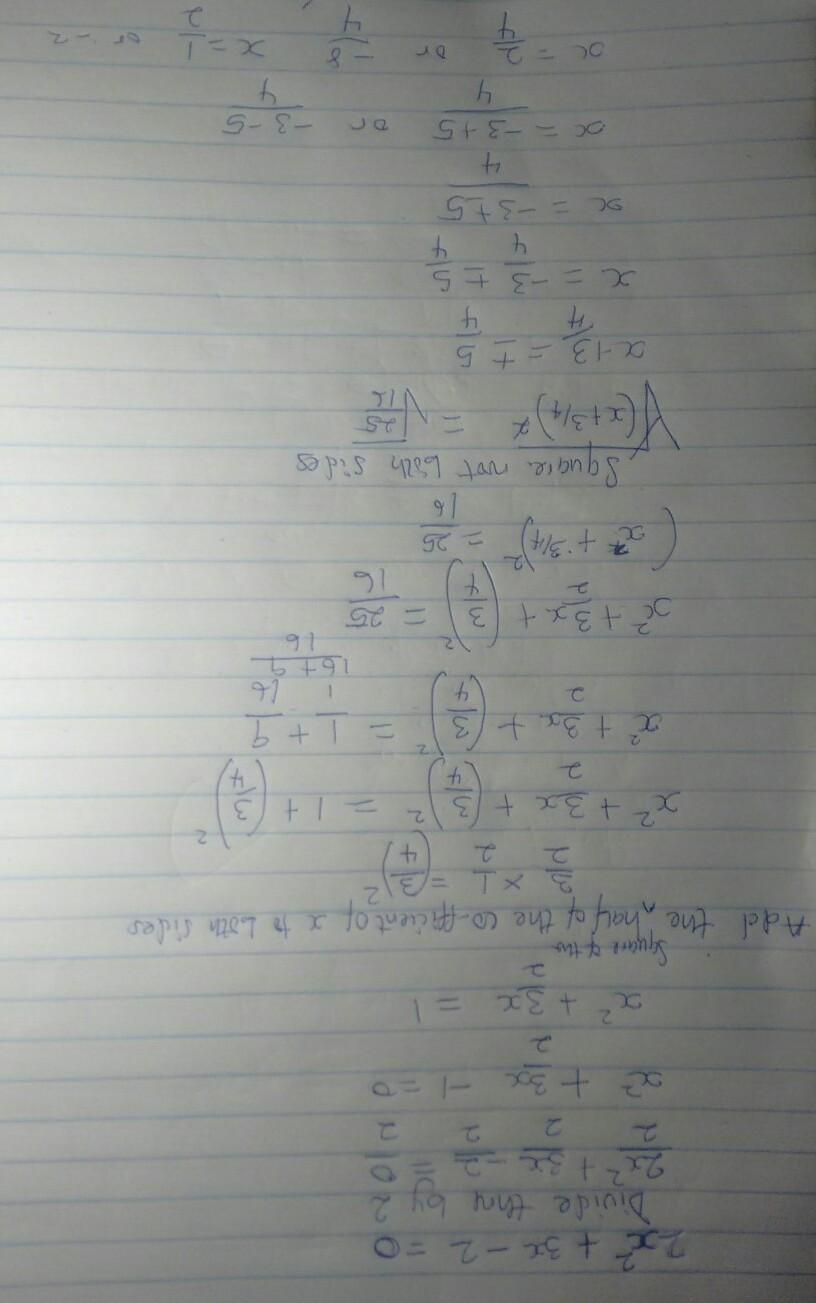 2x² + 3x - 2 = 0
Divide thru by 2
2x²/2 + 3x/2 - 2/2 = 0/2
x² + 3x/2 - 1 = 0
x² + 3x/2 = 1
Square of the
Add the ^ half of the co-fficient of x to both sides
3/2 × 1/2 = (3/4)²
x² + 3x/2 + (3/4)² = 1 + (3/4)²
x² + 3x/2 + (3/4)² = 1/1 + 9/16
16+9/16
x² + 3x/2 + (3/4)² = 25/16
(x + 3/4)² = 25/16
Square root both sides
√(x+3/4)² = √25/16
x+3/4 = ± 5/4
x = -3/4 ± 5/4
x = -3±5/4
x = -3+5/4 or -3-5/4
x = 2/4 or -8/4 x = 1/2 or -2